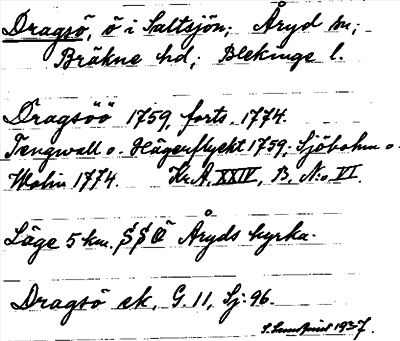 Dragsö, ö i Saltsjön; Åryd sn;
Bräkne hd; Blekinge l.
Dragsöö 1759, forts. 1774.
Tengwall o. Hägerflyckt 1759; Sjöbohm o.
Wolin 1774. Kr.A. XXIV, B. N:o VI.
Läge 5 km. SSÖ Åryds kyrka.
Dragsö ek. G. 11, Sj. 96.
1937.